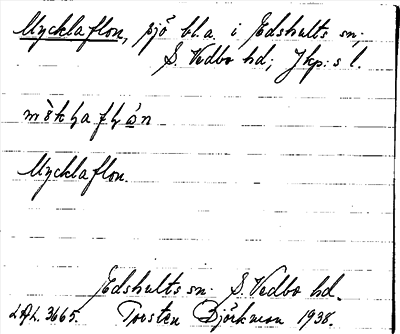 Mycklaflon, sjö bl.a. i Edshults sn.
S. Vedbo hd; Jkp:s l.
Mycklaflon.
Edshults sn. S. Vedbo hd.
LAL. 3665. Torsten Björkman 1938.